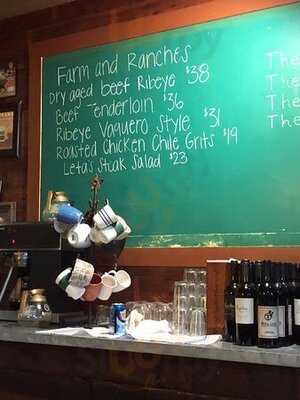 Farm and Ranches
Dry aged beef Ribeye $38
Beef Tenderloin $36
Ribeye Vaquero Style $31
Roasted Chicken Chile Grits $19
Leta's Steak Salad $23
The
The
The
The